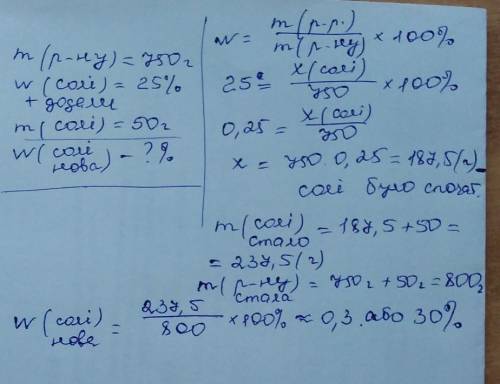 m(р-ну) = 750г
w(солі) = 25%
+ додали
m(солі) = 50г
w(солі нова) - ?%
w = m(р-р.) / m(р-ну) × 100%
25 = x(солі) / 750 × 100%
0,25 = x(солі) / 750
x = 750 · 0,25 = 187,5(г)
солі було спочат.
m(солі стало) = 187,5 + 50 =
= 237,5(г)
m(р-ну стала) = 750г + 50г = 800г
w(солі нова) = 237,5 / 800 × 100% ≈ 0,3 або 30%